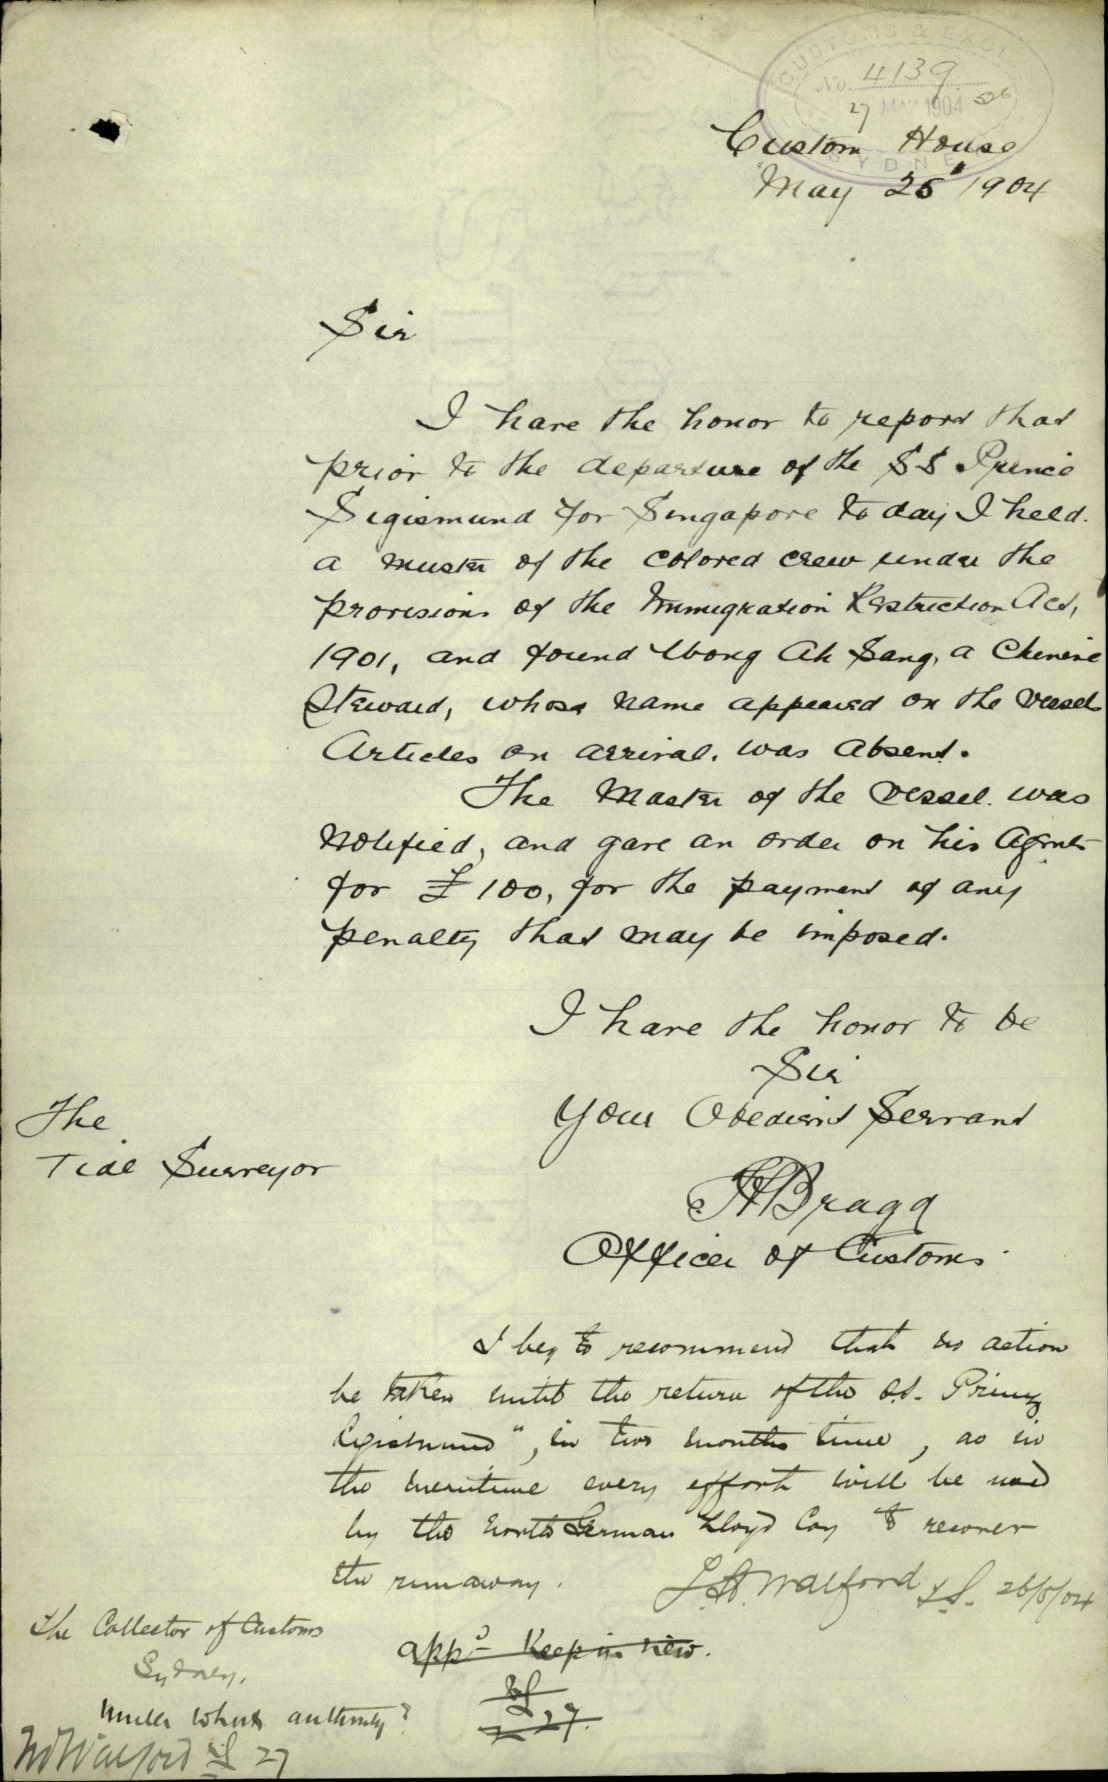 CUSTOMS & EXCISE
No. 4139
27 MAY 1904 526
SYDNEY
Custom House
May 26" 1904
Sir
I have the honor to report that
prior to the departure of the SS Prince
Sigismund for Singapore to day I held
a muster of the colored crew under the
provisions of the Immigration Restriction Act,
1901, and found Wong Ah Sang, a Chinese
Steward, whose name appeared on the vessels
Articles on arrival, was absent.
The Master of the vessel was
notified, and gave an order on his Agents
for £100, for the payment of any
penalty that may be imposed.
I have the honor to be
Sir
Your Obedient Servant
Bragg
Officer of Customs
The
Tide Surveyor
I beg to recommend that no action
be taken until the return of the s.s. Prinz
Sigismund", in two months time, as in
the meantime every effort will be used
by the North German Lloyd Coy to recover
the runaway.
Walford T.S. 26/5/04
The Collector of Customs
Sydney.
appd Keep in view.
27.
Under what authority?
Mr Walford 27